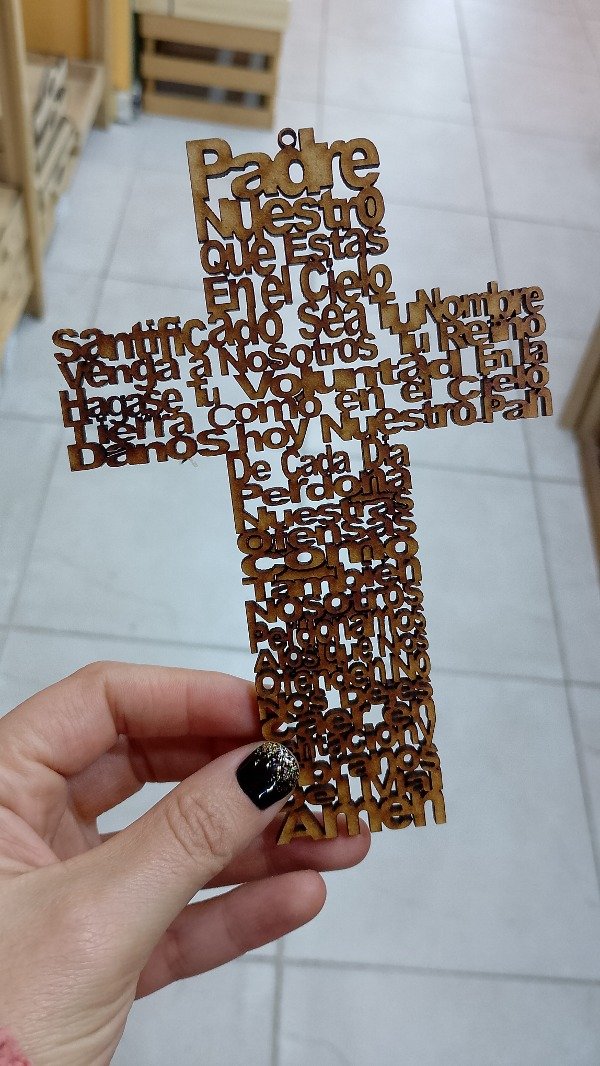 Padre
Nuestro
Que Estas
En el Cielo
Santificado Sea tu Nombre
Venga a Nosotros tu Reino
Hagase tu Voluntad En la
Tierra Como en el Cielo
Danos hoy Nuestro Pan
De Cada Dia
Perdona
Nuestras
Ofensas
Como
Tambien
Nosotros
Perdonamos
A los que Nos
Ofenden No
Nos Dejes
Caer en
Amen